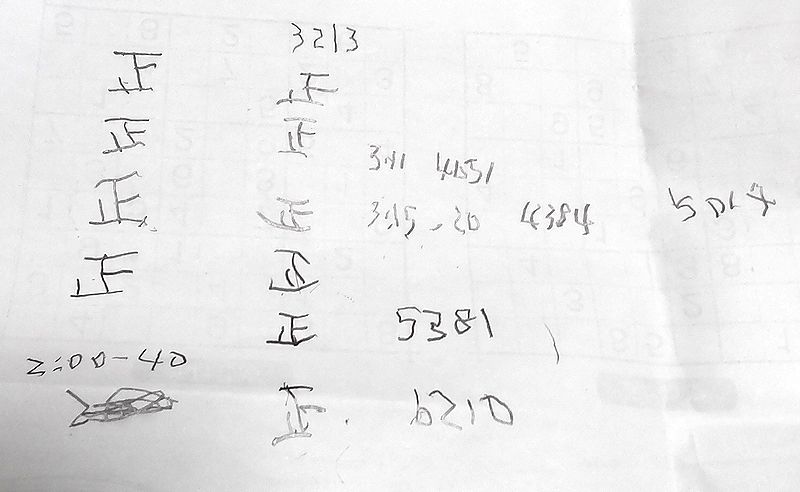 3213
正 正
正 正
3:11 4051
正 正 3:15-20 4384 5017
正 正
正 5381
2:00-40
正 6210